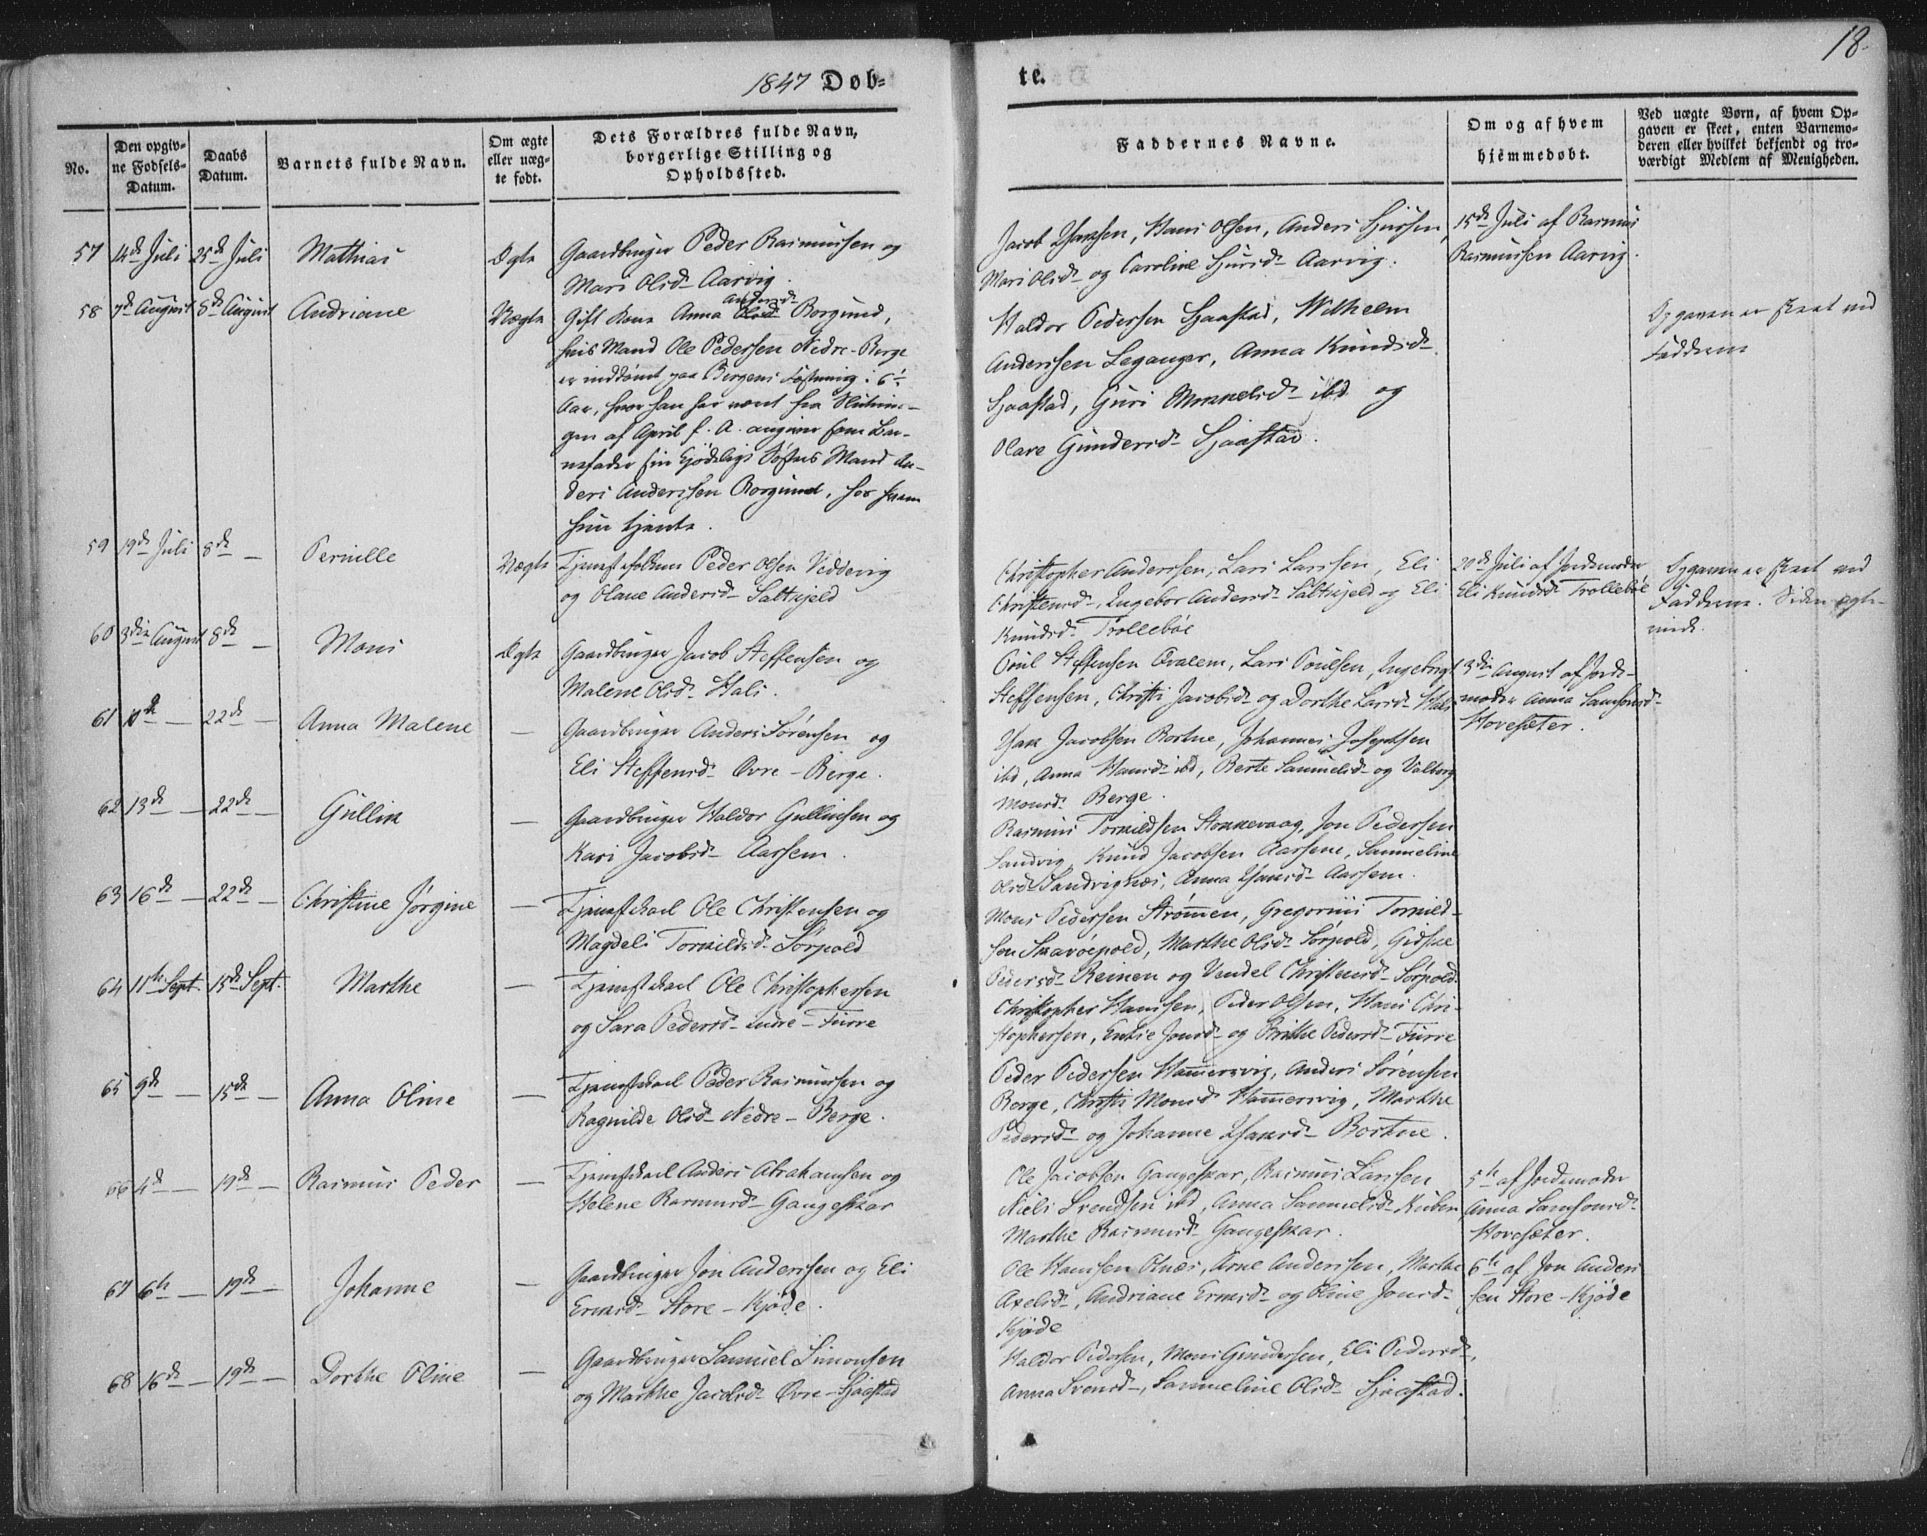 1847 Døb=
te.
18.
No.
Den opgiv-
ne Fødsels-
Datum.
Daabs
Datum.
Barnets fulde Navn.
Om ægte
eller uæg-
te født.
Dets Forældres fulde Navn,
borgerlige Stilling og
Opholdssted.
Faddernes Navne.
Om og af hvem
hjemmedøbt.
Ved uægte Børn, af hvem Op-
gaven er skeet, enten Barnemo-
deren eller hvilket bekjendt og tro-
værdigt Medlem af Menigheden.
57 14de Juli 25de Juli Mathias Ægte
Gaardbruger Peder Rasmussen og
Mari Olsd. Aarvig.
Hans Olsen, Anders Sjursen,
Mari Olsd. og Caroline Sjursd. Aarvig.
15de Juli af Rasmus
Rasmussen Aarvig.
58 7de August 8de August Andriane Uægte
Gift Kone Anna Andersd. Borgund,
hvis Mand Ole Pedersen Nedre-Berge
er inddømt paa Bergens Fæstning i 6
Aar, hvor han har været fra Slutnin-
gen af April f. A. angiver som Bar-
nefader sin Kjødelige Søsters Mand An-
ders Anderssen Borgund, hos hvem
hun tjente.
Haldor Pedersen Sjaastad, Wilhelm
Anderssen Leganger, Anna Knudsd.
Sjaastad, Guri Monnelsd. ibd og
Olave Gundersd. Sjaastad.
Opgaven er skeet ved
Fadderne
59 19de Juli 8de — Pernille Uægte
Tjenestefolkene Peder Olsen Veddevig
og Olave Andersd. Saltskjeld
Christopher Anderssen, Lars Larssen, Eli
Christensd., Ingebor Andersd. Saltskjeld og Eli
Knudsd. Trollebøe
20de Juli af Jordemoder
Eli Knudsd. Trollebøe
Opgaven er skeet ved
Fadderne. Siden ægte-
viede.
60 3die August 8de — Mons Ægte
Gaardbruger Jacob Steffensen og
Malene Olsd. Hals.
Poul Steffensen Qvalem, Lars Poulsen, Ingebrigt
Steffensen, Christi Jacobsd. og Dorthe Larsd. Hals
3die August af Jorde-
moder Anna Samsonsd.
Hovesæter.
61 10de — 22de — Anna Malene —
Gaardbruger Anders Sørensen og
Eli Steffensd. Øvre-Berge.
Isak Jacobsen Bortne, Johannes Josephsen
ibd, Anna Hansd. ibd, Berte Samuelsd. og Valborg
Monsd. Berge.
62 13de — 22de — Gullik —
Gaardbruger Haldor Gullicksen og
Kari Jacobsd. Aarsem.
Rasmus Tornildsen Stokkevaag, Jon Pedersen
Sandvig, Knud Jacobsen Aarsem, Samueline
Olsd. Sandvignæs, Anna Hansd. Aarsem.
63 16de — 22de — Christine Jørgine —
Tjenestekarl Ole Christensen og
Magdeli Tornildsd. Sørpold
Mons Pedersen Strømmen, Gregorius Tornild-
sen Skavøepold, Marthe Olsd. Sørpold, Gidske
Pedersd. Reinen og Vendel Christensd. Sørpold.
64 11te Sept. 15de Sept. Marthe —
Tjenestekarl Ole Christophersen
og Sara Pedersd. Indre-Furre
Christopher Hanssen, Peder Olsen, Hans Chri-
stophersen, Enkie Jonsd. og Brithe Pedersd. Furre
65 9de — 15de — Anna Oline —
Tjenestekarl Peder Rasmussen og
Ragnilde Olsd. Nedre-Berge.
Peder Pedersen Hammersvig, Anders Sørensen
Berge, Christi Monsd. Hammersvig, Marthe
Pedersd. og Johanne Isaksd. Bortne.
66 4de — 19de — Rasmus Peder —
Tjenestekarl Anders Abrahamsen og
Helene Rasmusd. Gangeskar
Ole Jacobsen Gangeskar, Rasmus Larssen
Niels Svendsen ibd, Anna Samuelsd. Kuben,
Marthe Rasmusd. Gangeskar.
5te af Jordemoder
Anna Samsonsd.
Hovesæter.
67 6te — 19de — Johanne —
Gaardbruger Jon Anderssen og Eli
Ernsd. Store-Kjøde.
Ole Hanssen Otnæs, Arne Anderssen, Marthe
Axelsd., Andriane Ernsd. og Oline Jonsd.
Kjøde
6te af Jon Anders
sen Store-Kjøde
68 16de — 19de — Dorthe Oline —
Gaardbruger Samuel Simonsen
og Marthe Jacobsd. Øvre-Sjaastad
Haldor Pedersen, Mons Gundersen, Eli Pedersd.,
Anna Svensd., Samueline Olsd. Sjaastad.